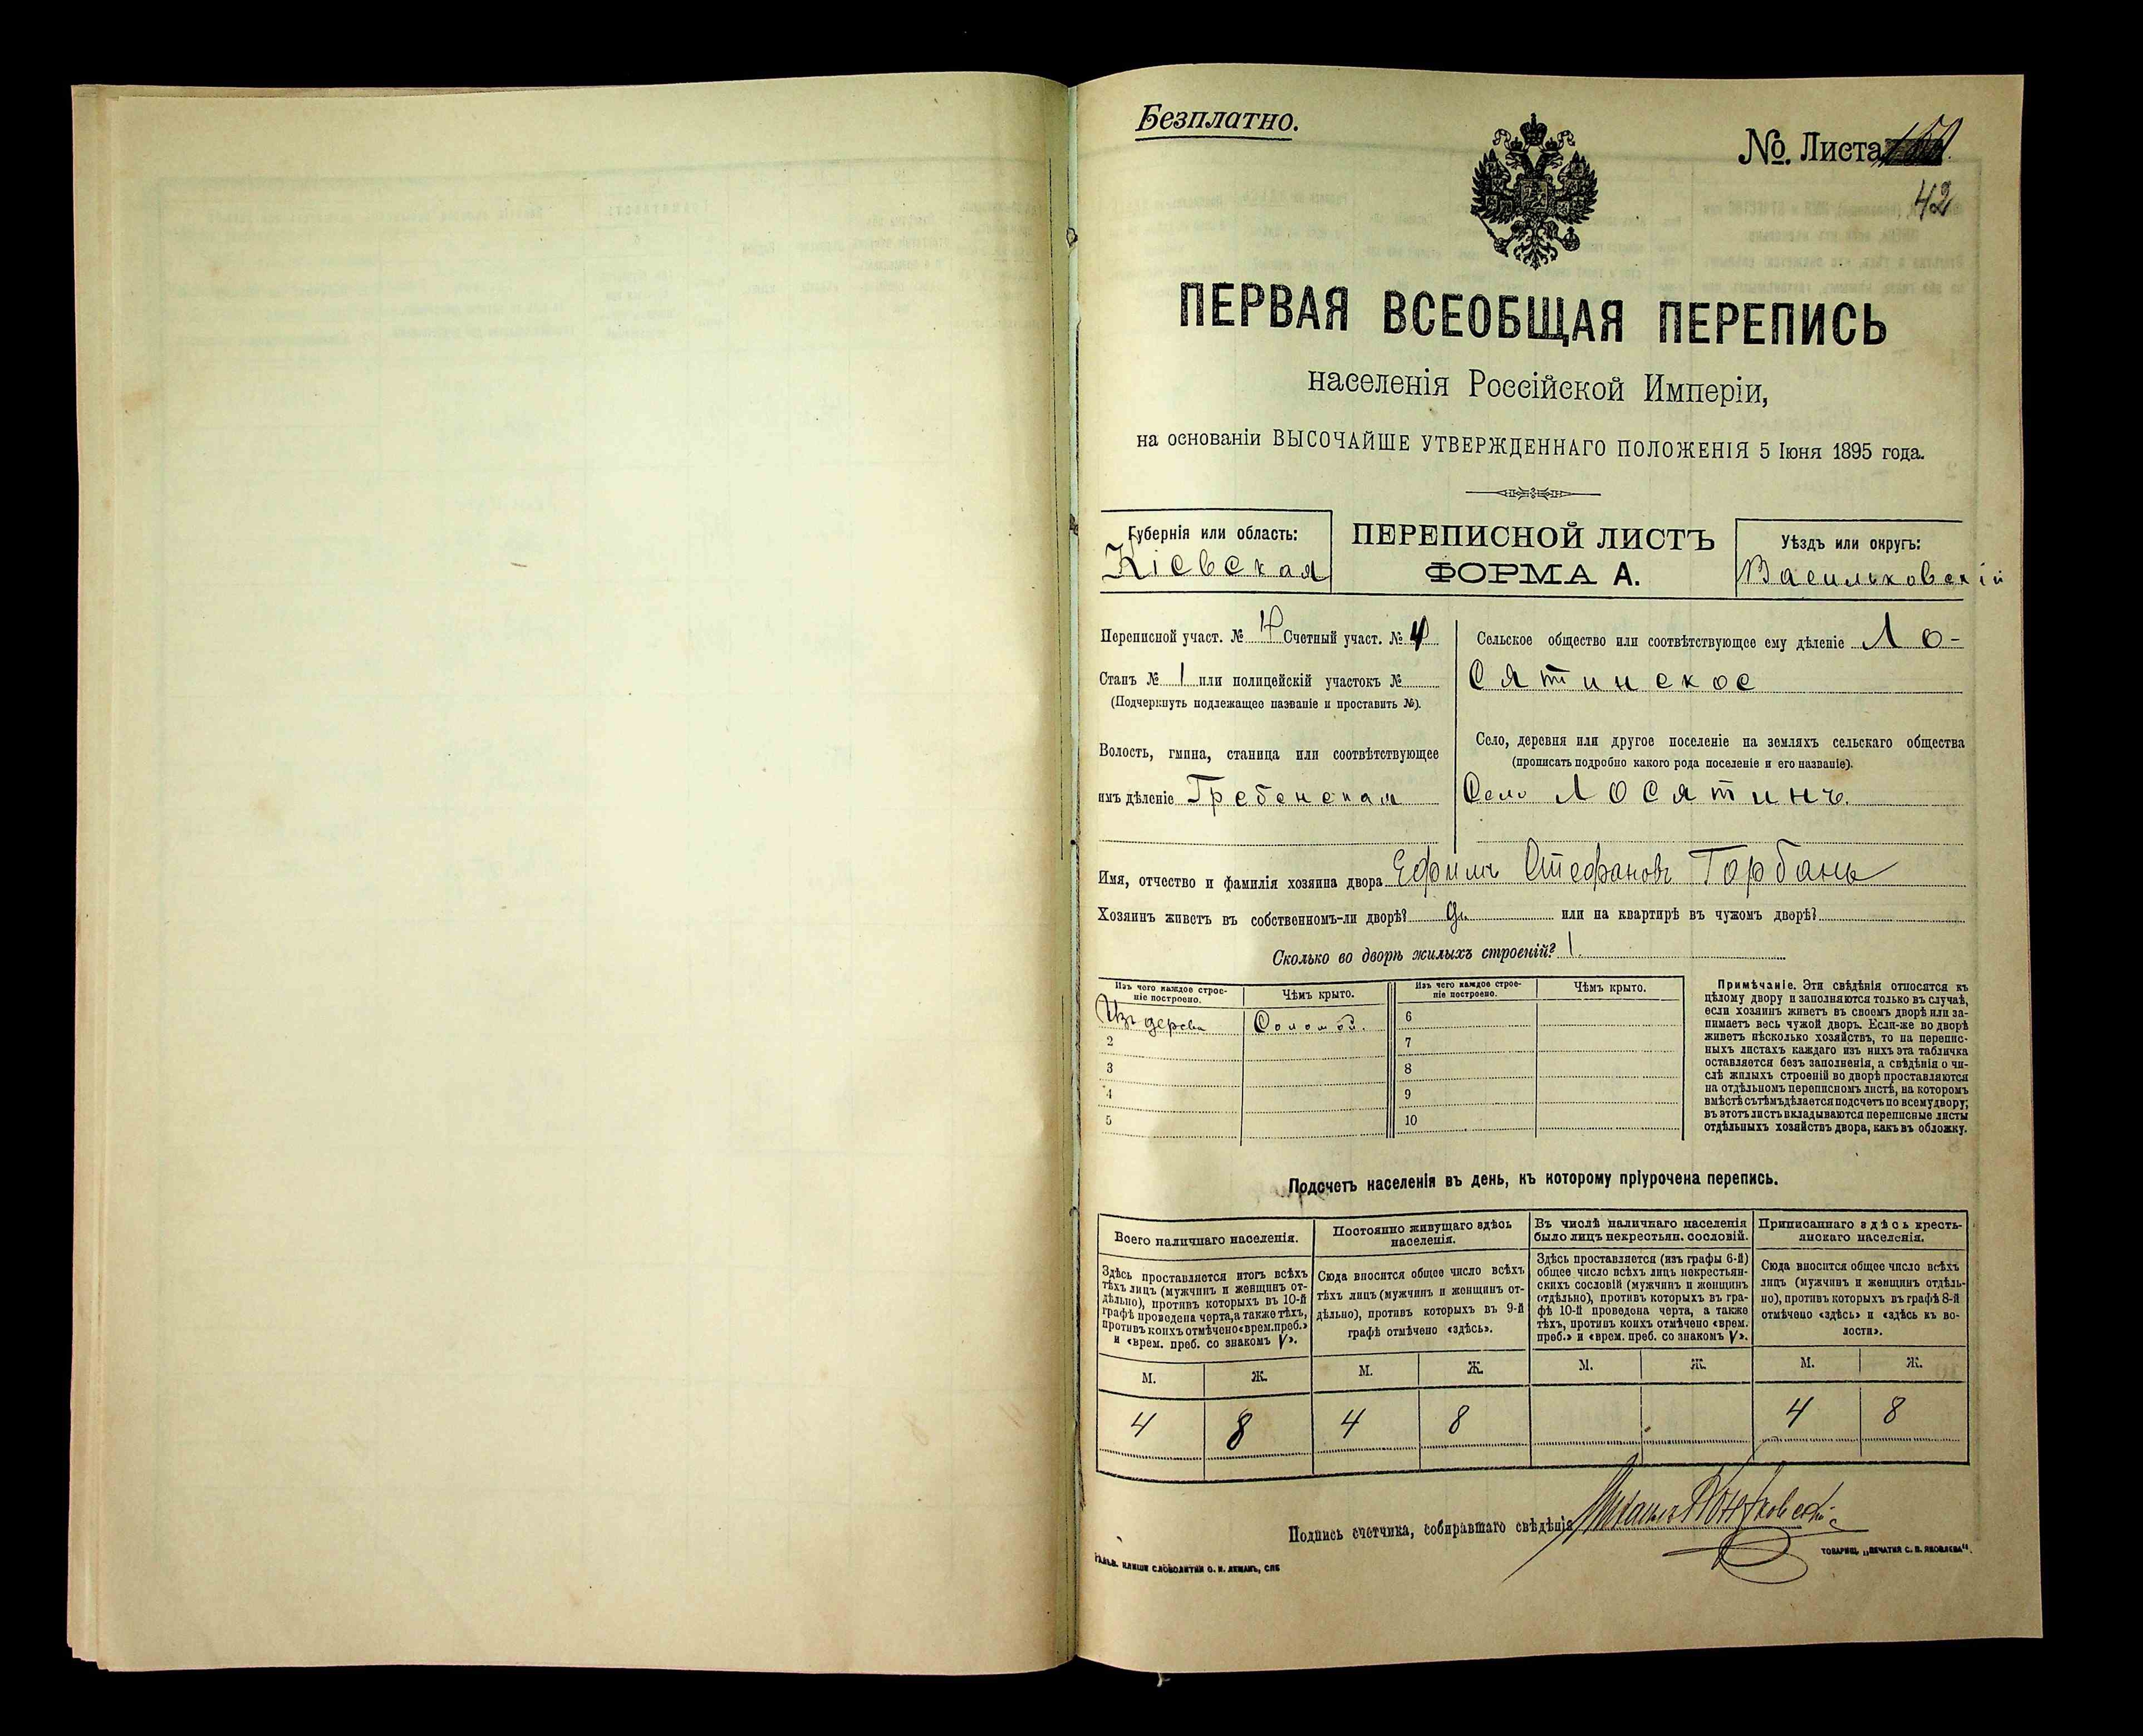 Безплатно.
№. Листа
42
ПЕРВАЯ ВСЕОБЩАЯ ПЕРЕПИСЬ
населенія Россійской Имперіи,
на основаніи ВЫСОЧАЙШЕ УТВЕРЖДЕННАГО ПОЛОЖЕНІЯ 5 Іюня 1895 года.
Губернія или область:
Кіевская
ПЕРЕПИСНОЙ ЛИСТЪ
ФОРМА А.
Уѣздъ или округъ:
Васильковскій
Переписной участ. № 4 Счетный участ. № 4
Станъ № 1 или полицейскій участокъ №
(Подчеркнуть подлежащее названіе и проставить №).
Волость, гмина, станица или соотвѣтствующее
имъ дѣленіе Гребенская
Сельское общество или соотвѣтствующее ему дѣленіе Ло-
сятинское
Село, деревня или другое поселеніе на земляхъ сельскаго общества
(прописать подробно какого рода поселеніе и его названіе).
Село Лосятинъ.
Имя, отчество и фамилія хозяина двора Ефимъ Стефановъ Горбань
Хозяинъ живетъ въ собственномъ-ли дворѣ? или на квартирѣ въ чужомъ дворѣ?
Сколько во дворѣ жилыхъ строеній? 1.
Изъ чего каждое строе-
ніе построено.
Чѣмъ крыто.
Изъ дерева
Соломой.
2
3
4
5
Изъ чего каждое строе-
ніе построено.
Чѣмъ крыто.
6
7
8
9
10
Примѣчаніе. Эти свѣдѣнія относятся къ
цѣлому двору и заполняются только въ случаѣ,
если хозяинъ живетъ въ своемъ дворѣ или за-
нимаетъ весь чужой дворъ. Если-же во дворѣ
живетъ нѣсколько хозяйствъ, то на перепис-
ныхъ листахъ каждаго изъ нихъ эта табличка
оставляется безъ заполненія, а свѣдѣнія о чи-
слѣ жилыхъ строеній во дворѣ проставляются
на отдѣльномъ переписномъ листѣ, на которомъ
вмѣстѣ съ тѣмъ дѣлается подсчетъ по всему двору;
въ этотъ листъ вкладываются переписные листы
отдѣльныхъ хозяйствъ двора, какъ въ обложку.
Подсчетъ населенія въ день, къ которому пріурочена перепись.
Всего наличнаго населенія.
Здѣсь проставляется итогъ всѣхъ
тѣхъ лицъ (мужчинъ и женщинъ от-
дѣльно), противъ которыхъ въ 10-й
графѣ проведена черта, а также тѣхъ,
противъ коихъ отмѣчено «врем. преб.»
и «врем. преб. со знакомъ V».
М. Ж.
4 8
Постоянно живущаго здѣсь
населенія.
Сюда вносится общее число всѣхъ
тѣхъ лицъ (мужчинъ и женщинъ от-
дѣльно), противъ которыхъ въ 9-й
графѣ отмѣчено «здѣсь».
М. Ж.
4 8
Въ числѣ наличнаго населенія
было лицъ некрестьян. сословій.
Здѣсь проставляется (изъ графы 6-й)
общее число всѣхъ лицъ некрестьян-
скихъ сословій (мужчинъ и женщинъ
отдѣльно), противъ которыхъ въ гра-
фѣ 10-й проведена черта, а также
тѣхъ, противъ коихъ отмѣчено «врем.
преб.» и «врем. преб. со знакомъ V».
М. Ж.
Приписаннаго здѣсь кресть-
янскаго населенія.
Сюда вносится общее число всѣхъ
лицъ (мужчинъ и женщинъ отдѣль-
но), противъ которыхъ въ графѣ 8-й
отмѣчено «здѣсь» и «здѣсь къ во-
лости».
М. Ж.
4 8
Подпись счетчика, собиравшаго свѣдѣнія
КЛИШЕ СЛОВОЛИТНИ О. И. ЛЕМАНЪ, СПБ
ТОВАРИЩ. „ПЕЧАТНЯ С. П. ЯКОВЛЕВА".